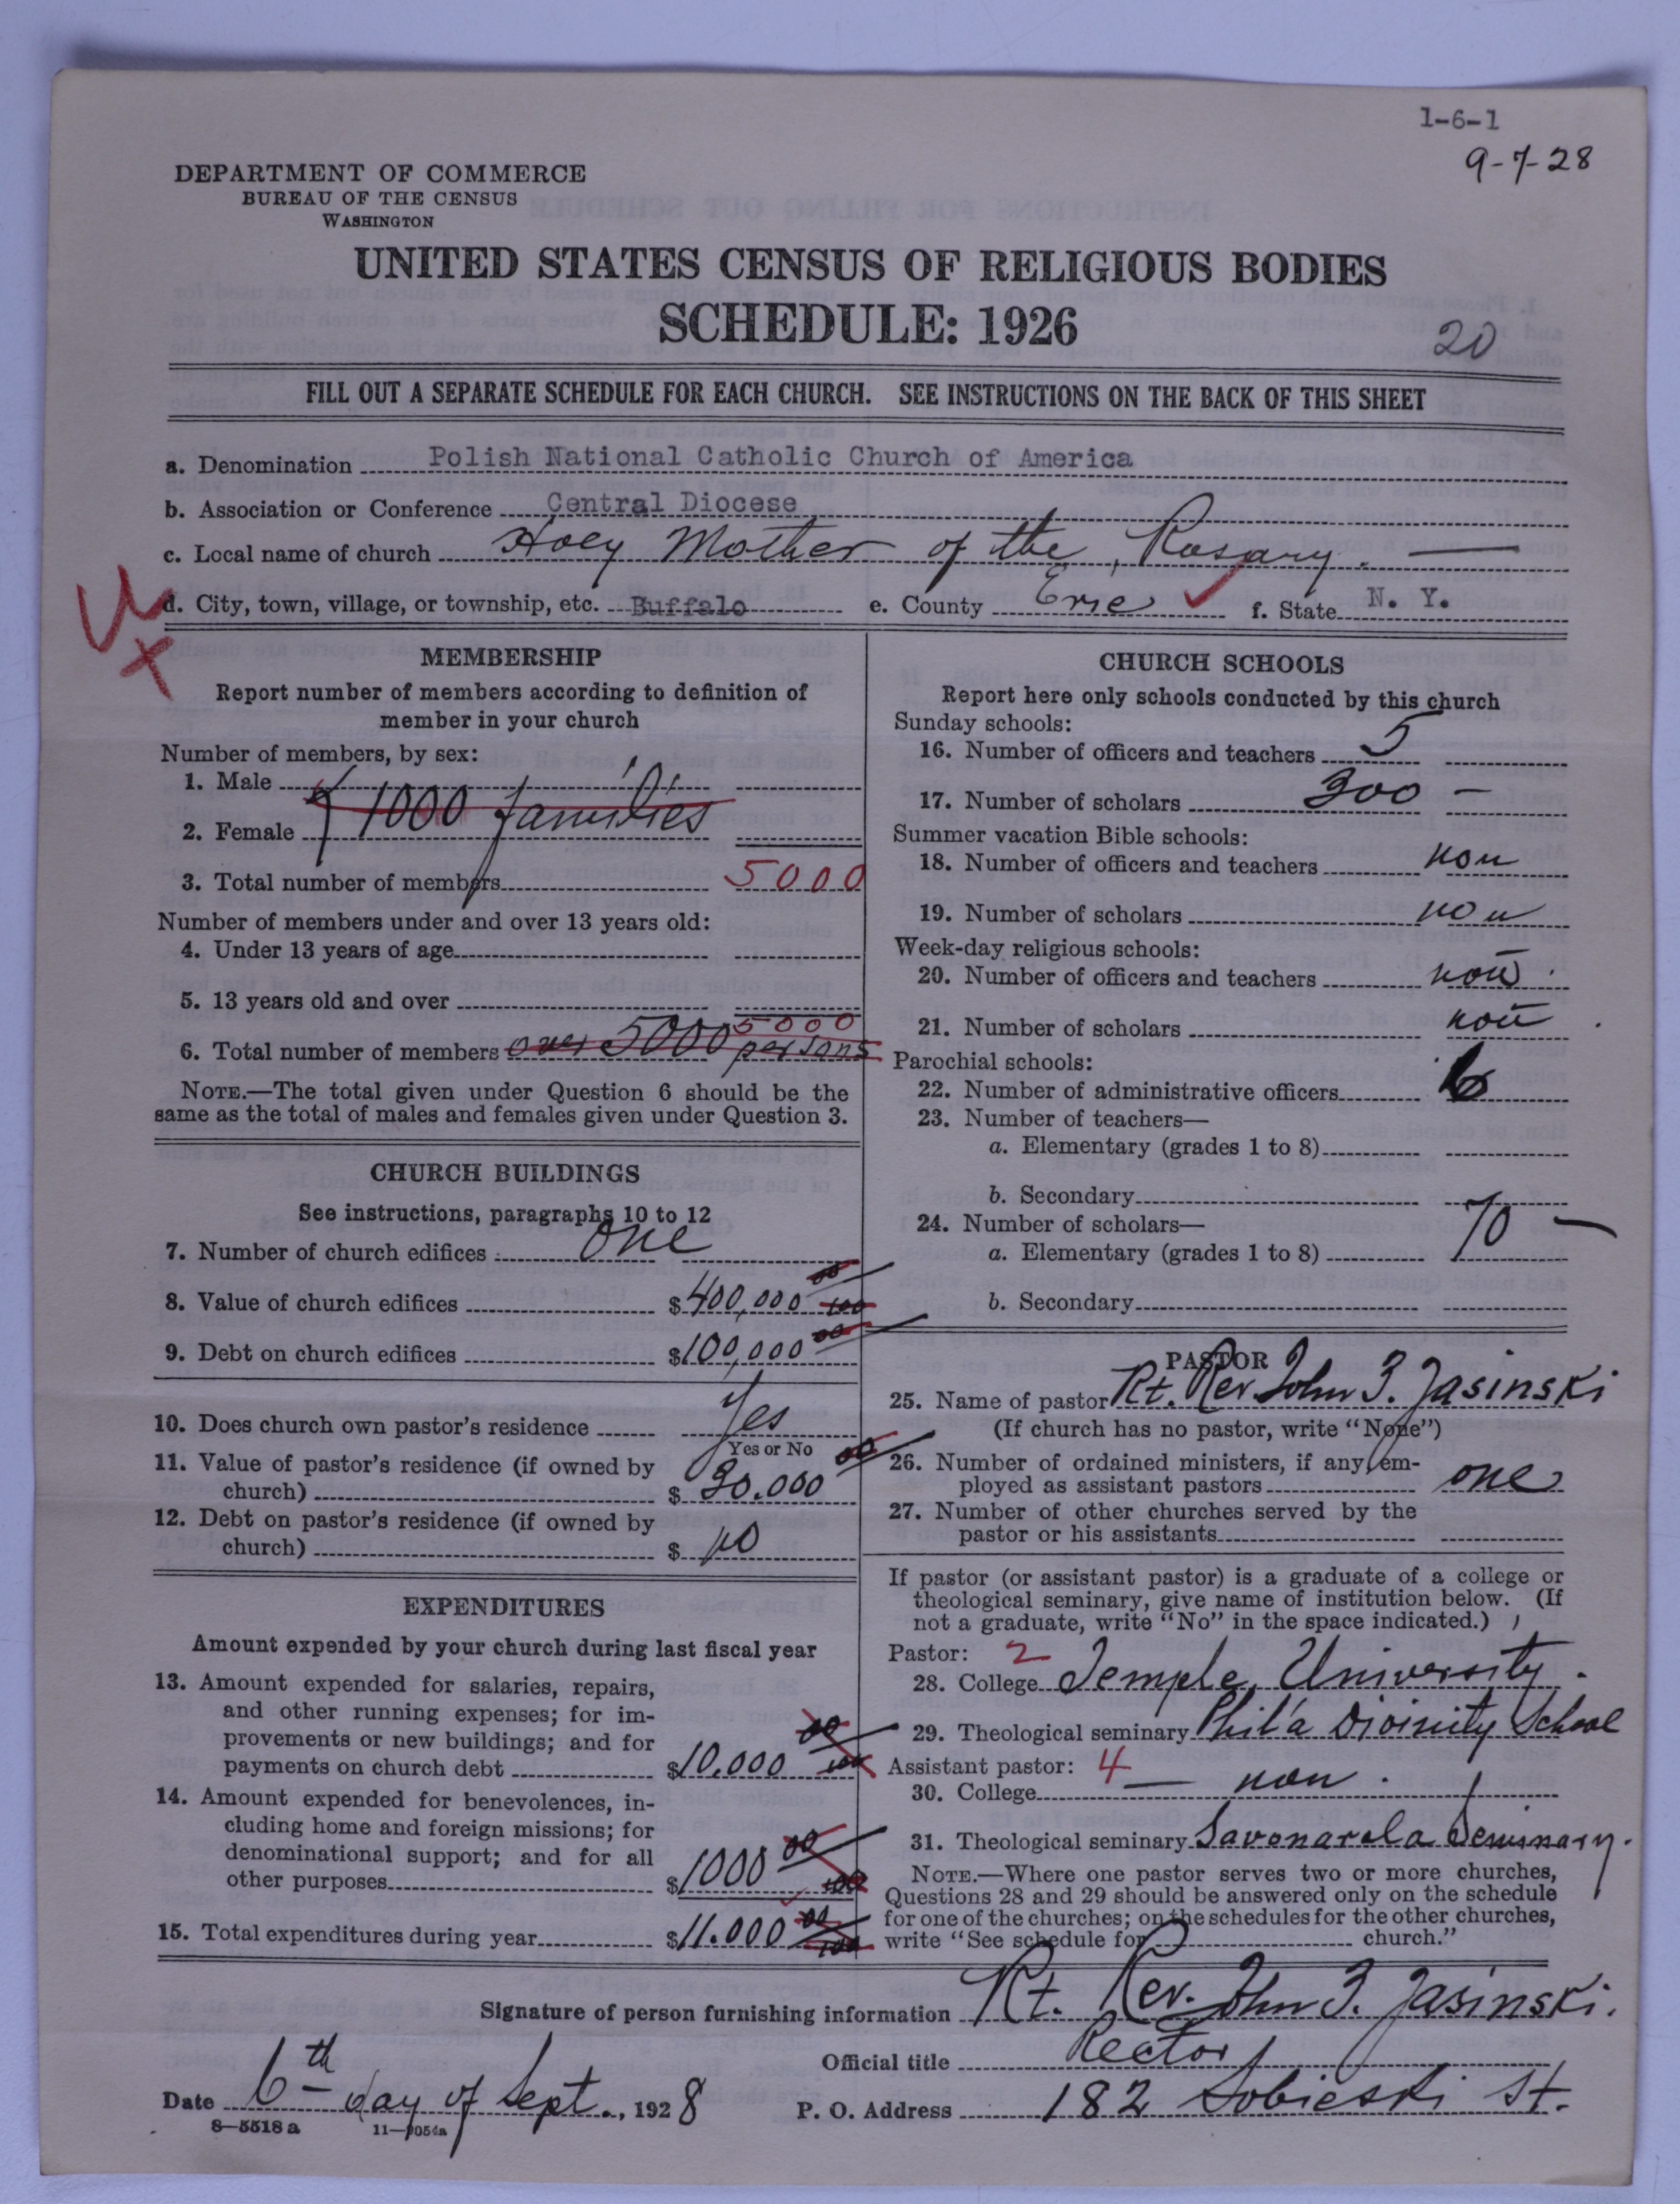 1-6-1
9-7-28
DEPARTMENT OF COMMERCE
BUREAU OF THE CENSUS
WASHINGTON
UNITED STATES CENSUS OF RELIGIOUS BODIES
SCHEDULE: 1926
20
FILL OUT A SEPARATE SCHEDULE FOR EACH CHURCH. SEE INSTRUCTIONS ON THE BACK OF THIS SHEET
a. Denomination Polish National Catholic Church of America
b. Association or Conference Central Diocese
c. Local name of church Holy Mother of the Rosary.
d. City, town, village, or township, etc. Buffalo e. County Erie f. State N. Y.
MEMBERSHIP
Report number of members according to definition of
member in your church
Number of members, by sex:
1. Male
1000 families
2. Female
3. Total number of members 5000
Number of members under and over 13 years old:
4. Under 13 years of age
5. 13 years old and over
5000
6. Total number of members over 5000 persons
NOTE.—The total given under Question 6 should be the
same as the total of males and females given under Question 3.
CHURCH BUILDINGS
See instructions, paragraphs 10 to 12
7. Number of church edifices one
8. Value of church edifices $400,000 00/100
9. Debt on church edifices $100,000 00
10. Does church own pastor's residence Yes
Yes or No
11. Value of pastor's residence (if owned by
church) $ 30.000 00
12. Debt on pastor's residence (if owned by
church) $ no
EXPENDITURES
Amount expended by your church during last fiscal year
13. Amount expended for salaries, repairs,
and other running expenses; for im-
provements or new buildings; and for
payments on church debt $10.000 00/100
14. Amount expended for benevolences, in-
cluding home and foreign missions; for
denominational support; and for all
other purposes $1000 00/100
15. Total expenditures during year $11.000 00/100
CHURCH SCHOOLS
Report here only schools conducted by this church
Sunday schools:
16. Number of officers and teachers 5
17. Number of scholars 300 —
Summer vacation Bible schools:
18. Number of officers and teachers non
19. Number of scholars non
Week-day religious schools:
20. Number of officers and teachers non
21. Number of scholars non
Parochial schools:
22. Number of administrative officers 6
23. Number of teachers—
a. Elementary (grades 1 to 8)
b. Secondary
24. Number of scholars—
a. Elementary (grades 1 to 8) 70 —
b. Secondary
PASTOR
25. Name of pastor Rt. Rev John Z. Jasinski
(If church has no pastor, write "None")
26. Number of ordained ministers, if any, em-
ployed as assistant pastors one
27. Number of other churches served by the
pastor or his assistants
If pastor (or assistant pastor) is a graduate of a college or
theological seminary, give name of institution below. (If
not a graduate, write "No" in the space indicated.)
Pastor: 2
28. College Temple University.
29. Theological seminary Phil'a Divinity School
Assistant pastor: 4
30. College — non.
31. Theological seminary Savonarola Seminary.
NOTE.—Where one pastor serves two or more churches,
Questions 28 and 29 should be answered only on the schedule
for one of the churches; on the schedules for the other churches,
write "See schedule for church."
Signature of person furnishing information Rt. Rev. John Z. Jasinski.
Official title Rector
Date 6th day of Sept., 1928 P. O. Address 182 Sobieski St.
8—5518 a 11—9054a